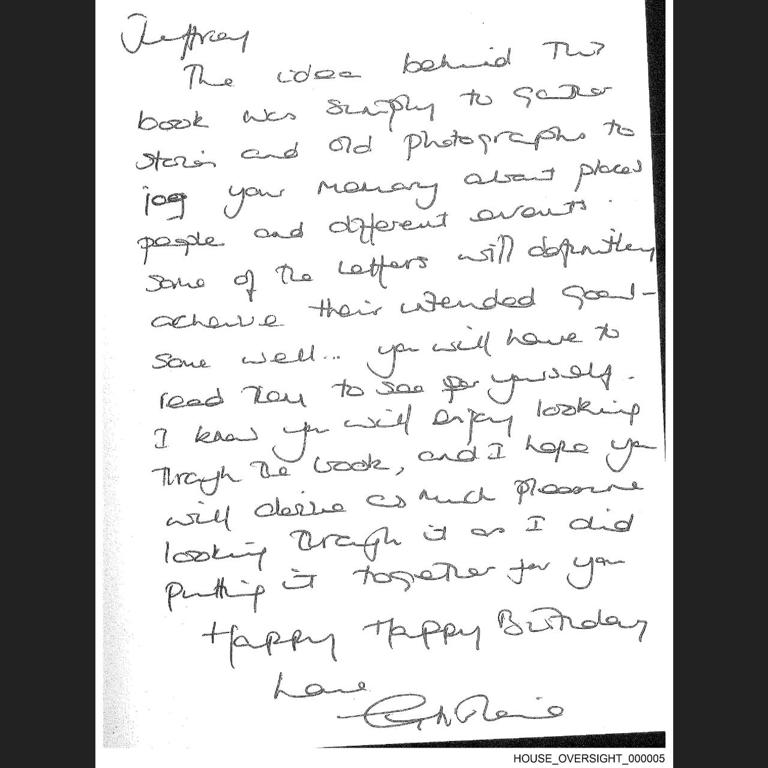 Jeffrey
The idea behind this
book was simply to gather
stories and old photographs to
jog your memory about places
people and different events.
some of the letters will definitely
achieve their intended goal -
some well... you will have to
read them to see for yourself.
I know you will enjoy looking
through the book, and I hope you
will derive as much pleasure
looking through it as I did
putting it together for you
Happy Happy Birthday
Love
Ghislaine
HOUSE_OVERSIGHT_000005